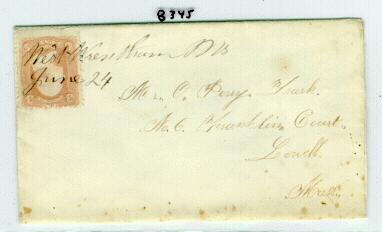 B345
West Wrentham
June 24
Mr. C. Perry
No. 6. Franklin Court.
Lowell.
Mass.